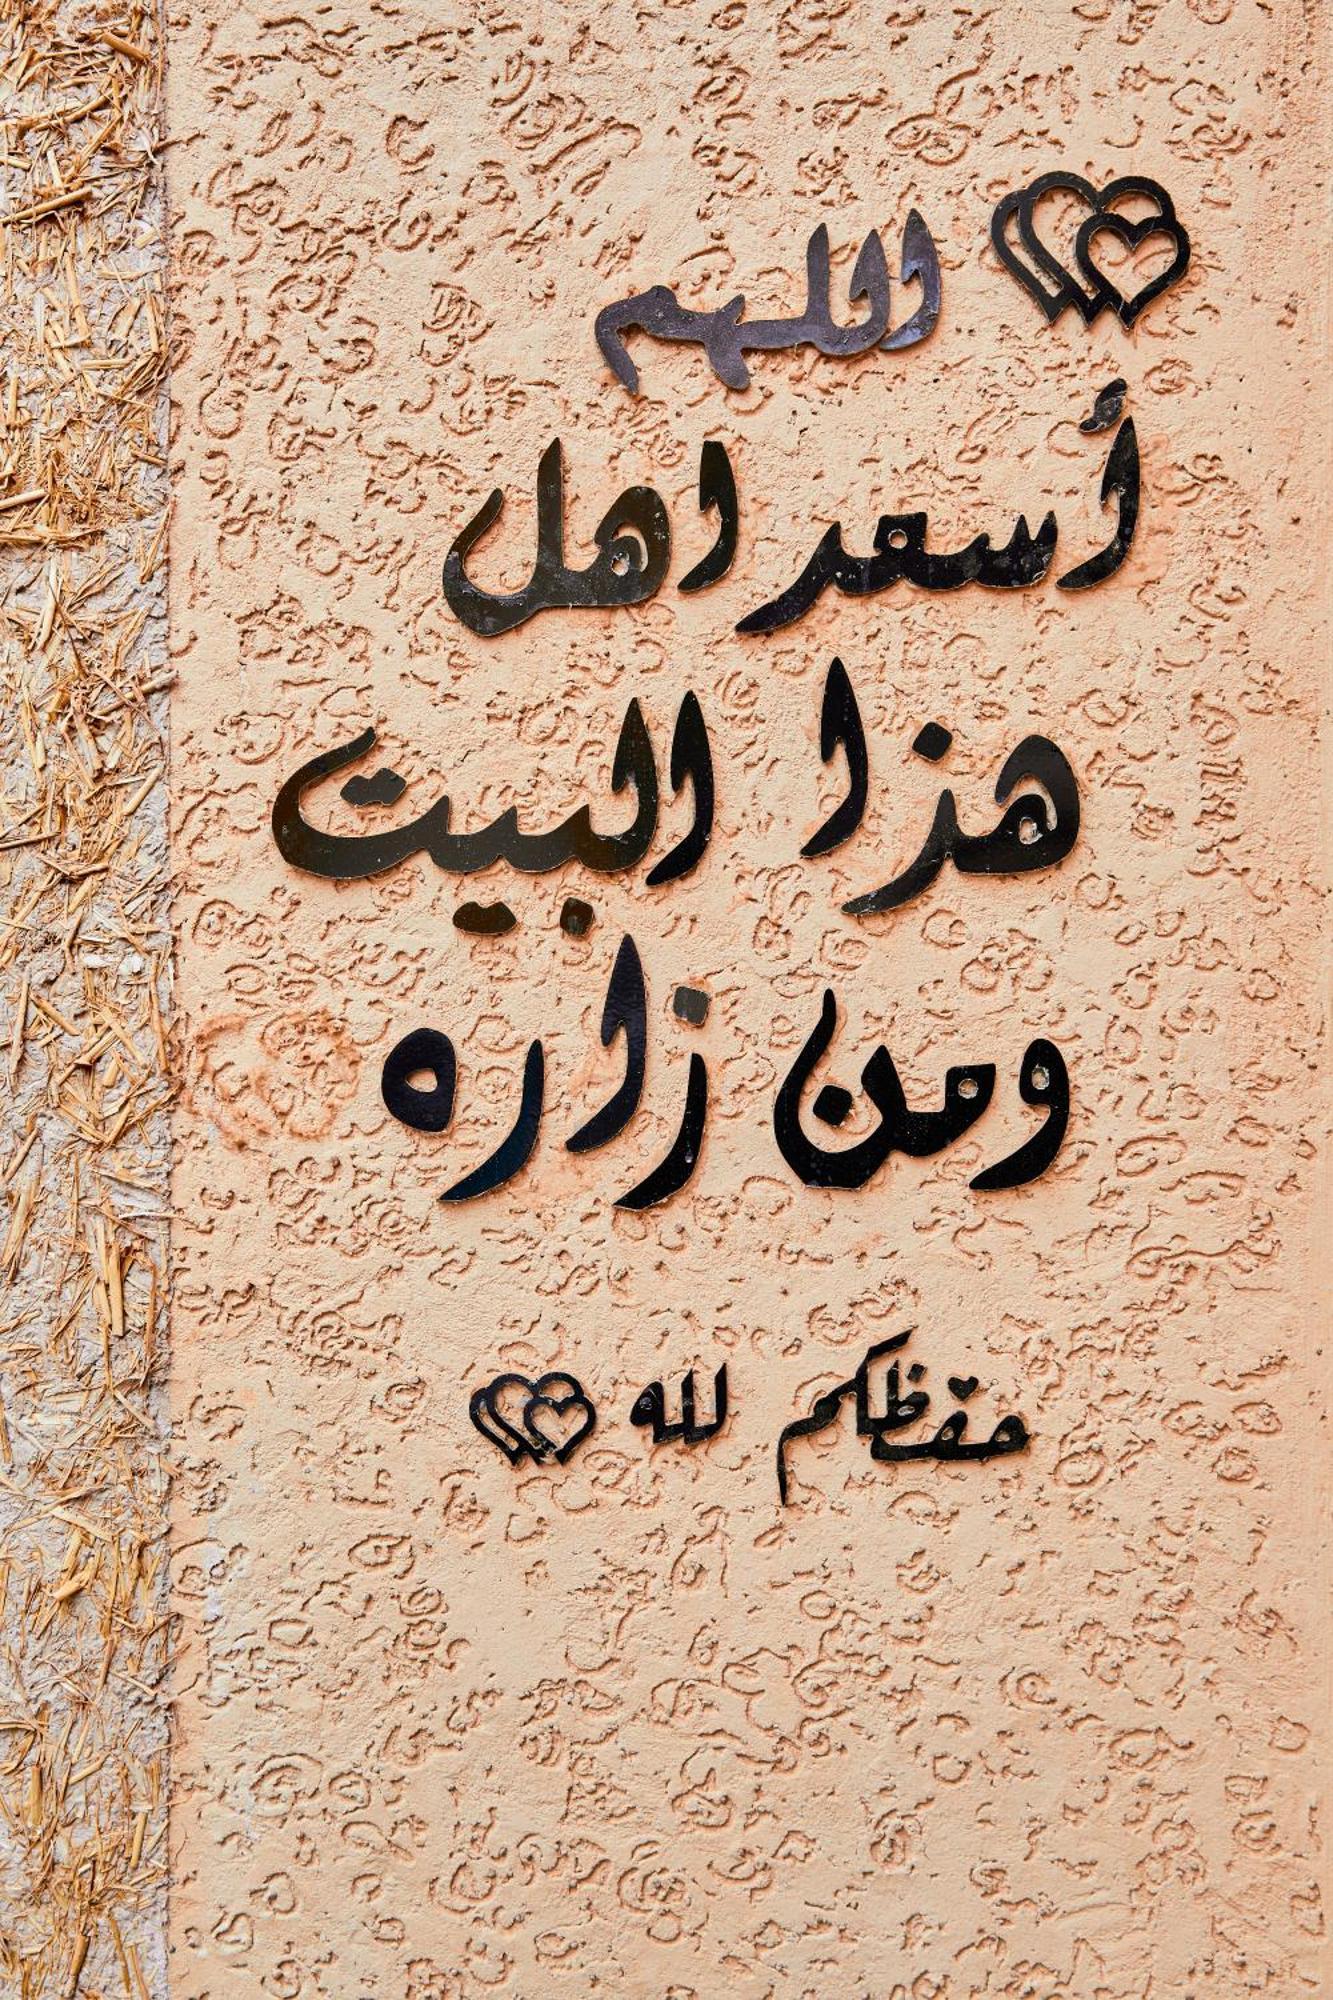 اللهم
أسعد اهل
هذا البيت
ومن زاره
حفظكم لله